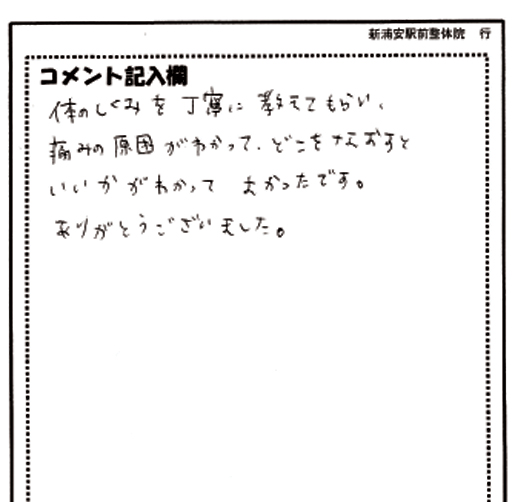 新浦安駅前整体院 行
コメント記入欄
体のしくみを丁寧に教えてもらい、
痛みの原因がわかって、どこをなおすと
いいかがわかって よかったです。
ありがとうございました。